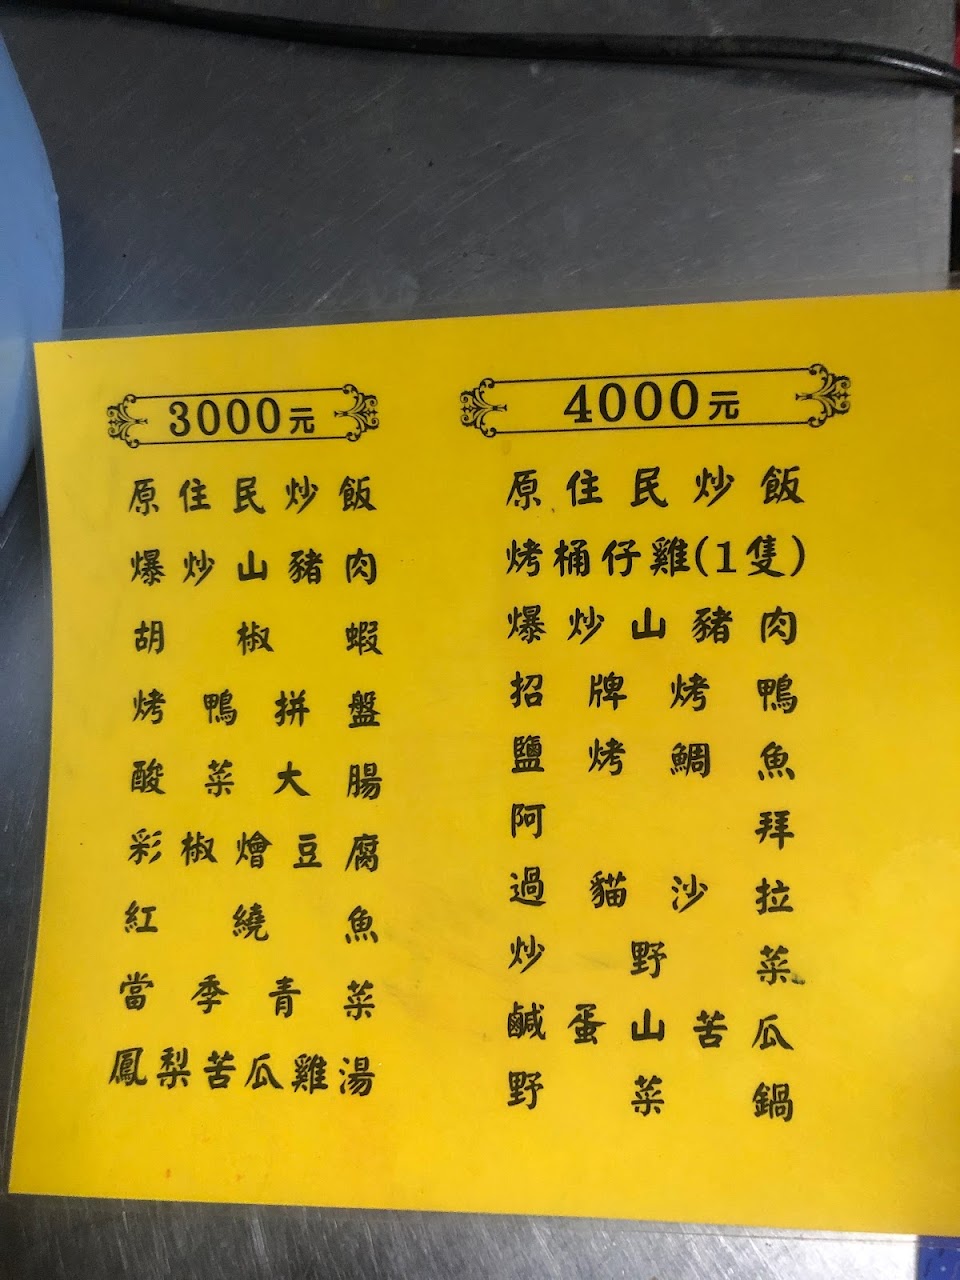 3000元
原住民炒飯
爆炒山豬肉
胡椒蝦
烤鴨拼盤
酸菜大腸
彩椒燴豆腐
紅繞魚
當季青菜
鳳梨苦瓜雞湯
4000元
原住民炒飯
烤桶仔雞(1隻)
爆炒山豬肉
招牌烤鴨
鹽烤鯛魚
阿拜
過貓沙拉
炒野菜
鹹蛋山苦瓜
野菜鍋